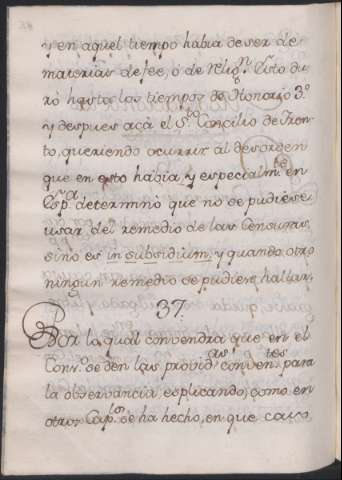 y en aquel tiempo havia de ser de
materias de fee, ó de Relig.n Esto du
ró hasta los tiempos de Honorio 3.º
y despues acà el S.to Concilio de Tren
to, queriendo ocurrir al desorden
que en esto havia, y especialm.te en
Esp.a determinó que no se pudiese
usar del remedio de las Censuras,
sino es in subsidium, y quando otro
ningun remedio se pudiese hallar,
37.
Por la qual convendra que en el
Conv.º se den las provid.as conven.tes para
la observancia, esplicando, como en
otros Cap.los se ha hecho, en que caso